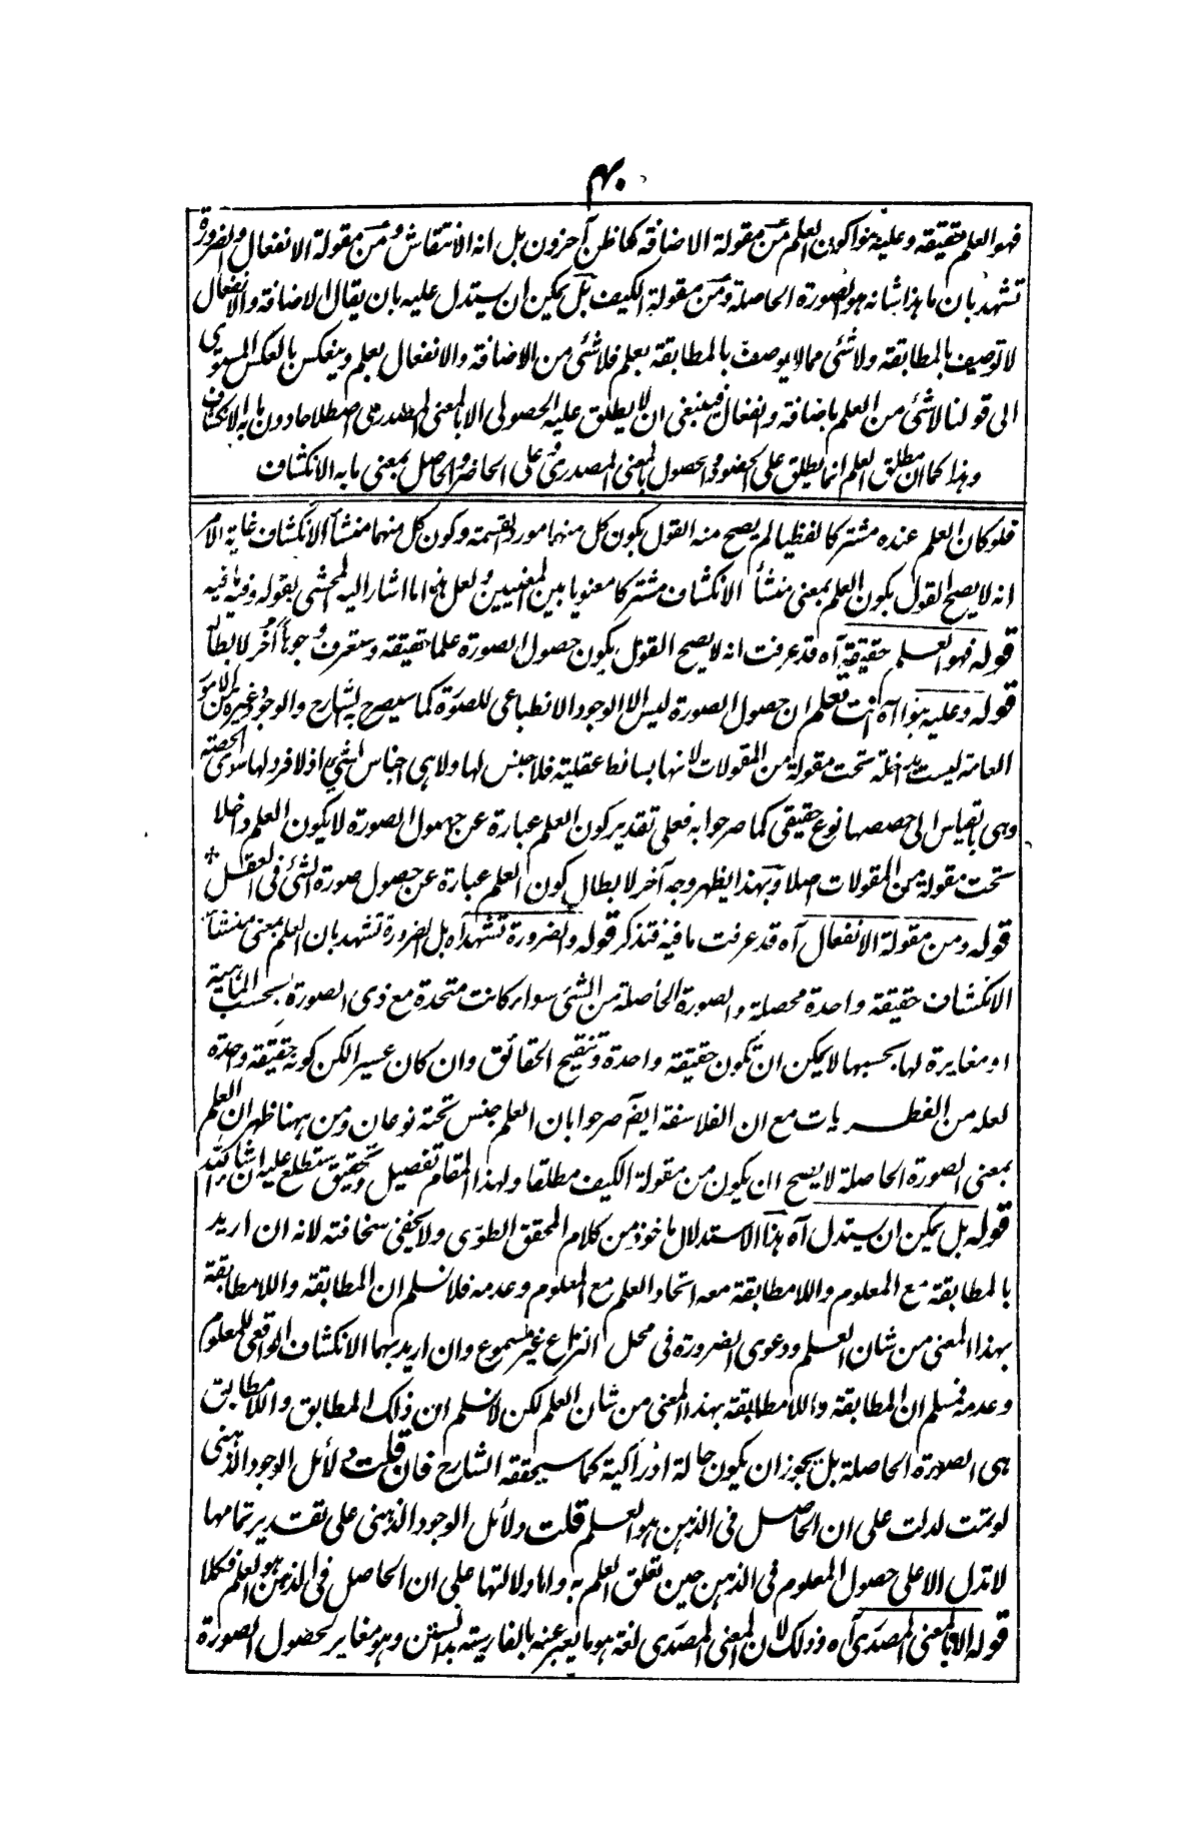 ۴۰
فهو العلم حقيقة وعليه بنوا كون العلم من مقولة الاضافة كما ظن آخرون بل انه الانتقاش ومن مقولة الانفعال والضرورة
تشهد بان ما هذا شانه هو الصورة الحاصلة ومن مقولة الكيف بل يمكن ان يستدل عليه بان يقال الاضافة والانفعال
لا توصف بالمطابقة ولا شئ مما لا يوصف بالمطابقة بعلم فلا شئ من الاضافة والانفعال بعلم وينعكس بالعكس المستوى
الى قولنا لا شئ من العلم باضافة وانفعال فينبغى ان لا يطلق عليه الحصولى الا بالمعنى المصدرى اصطلاحا دون ما به الانكشاف
وهذا كما ان مطلق العلم انما يطلق على الحضور والحصول بالمعنى المصدرى وعلى الحاضر والحاصل بمعنى ما به الانكشاف
فلو كان العلم عنده مشتركا لفظيا لم يصح منه القول بكون كل منهما مورد القسمة وكون كل منهما منشأ الانكشاف غاية الامر
انه لا يصح القول بكون العلم بمعنى منشأ الانكشاف مشتركا معنويا بين المعنيين ولعل هذا ما اشار اليه المحشى بقوله وفيه ما فيه
قوله فهو العلم حقيقة آه قد عرفت انه لا يصح القول بكون حصول الصورة علما حقيقة وستعرف وجوها أخر لابطاله
قوله وعليه بنوا آه أنت تعلم ان حصول الصورة ليس الا الوجود الانطباعى للصورة كما سيصرح به الشارح والوجود وغيره من الامور
العامة ليست داخلة تحت مقولة من المقولات لانها بسائط عقلية فلا جنس لها ولا هى اجناس لشئ اذ لا فرد لها سوى الحصة
وهى بالقياس الى حصصها نوع حقيقى كما صرحوا به فعلى تقدير كون العلم عبارة عن حصول الصورة لا يكون العلم داخلا
تحت مقولة من المقولات اصلا وبهذا يظهر وجه آخر لابطال كون العلم عبارة عن حصول صورة الشئ فى العقل *
قوله ومن مقولة الانفعال آه قد عرفت ما فيه فتذكر قوله والضرورة تشهد آه بل الضرورة تشهد بان العلم بمعنى منشأ
الانكشاف حقيقة واحدة محصلة والصورة الحاصلة من الشئ سواء كانت متحدة مع ذى الصورة بحسب الماهية
او مغايرة لها بحسبها لا يمكن ان تكون حقيقة واحدة وتنقيح الحقائق وان كان عسيرا لكن كونه حقيقة واحدة
لعله من الفطريات مع ان الفلاسفة ايضا صرحوا بان العلم جنس تحته نوعان ومن ههنا ظهر ان العلم
بمعنى الصورة الحاصلة لا يصح ان يكون من مقولة الكيف مطلقا ولهذا المقام تفصيل وتحقيق ستطلع عليه ان شاء الله
قوله بل يمكن ان يستدل آه هذا الاستدلال ماخوذ من كلام المحقق الطوسى ولا يخفى سخافته لانه ان اريد
بالمطابقة مع المعلوم واللامطابقة معه اتحاد العلم مع المعلوم وعدمه فلا نسلم ان المطابقة واللامطابقة
بهذا المعنى من شان العلم ودعوى الضرورة فى محل النزاع غير مسموع وان اريد بهما الانكشاف الواقعى للمعلوم
وعدمه فمسلم ان المطابقة واللامطابقة بهذا المعنى من شان العلم لكن لا نسلم ان ذلك المطابق واللامطابق
هى الصورة الحاصلة بل يجوز ان يكون حالة ادراكية كما سيحققه الشارح فان قلت دلائل الوجود الذهنى
لو تمت لدلت على ان الحاصل فى الذهن هو العلم قلت دلائل الوجود الذهنى على تقدير تمامها
لا تدل الا على حصول المعلوم فى الذهن حين تعلق العلم به واما دلالتها على ان الحاصل فى الذهن هو العلم فكلا
قوله الا بالمعنى المصدرى آه وذلك لان المعنى المصدرى لغة هو ما يعبر عنه بالفارسية بدانستن وهو مغاير لحصول الصورة